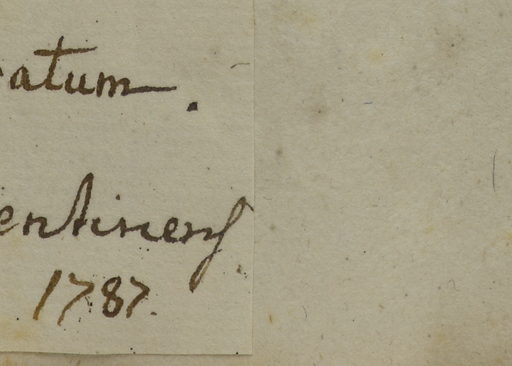 atum.
entinens
1787.